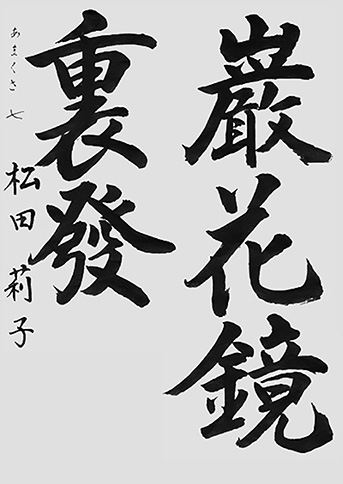 巌花鏡
裏發
あまくさ 七 松田莉子